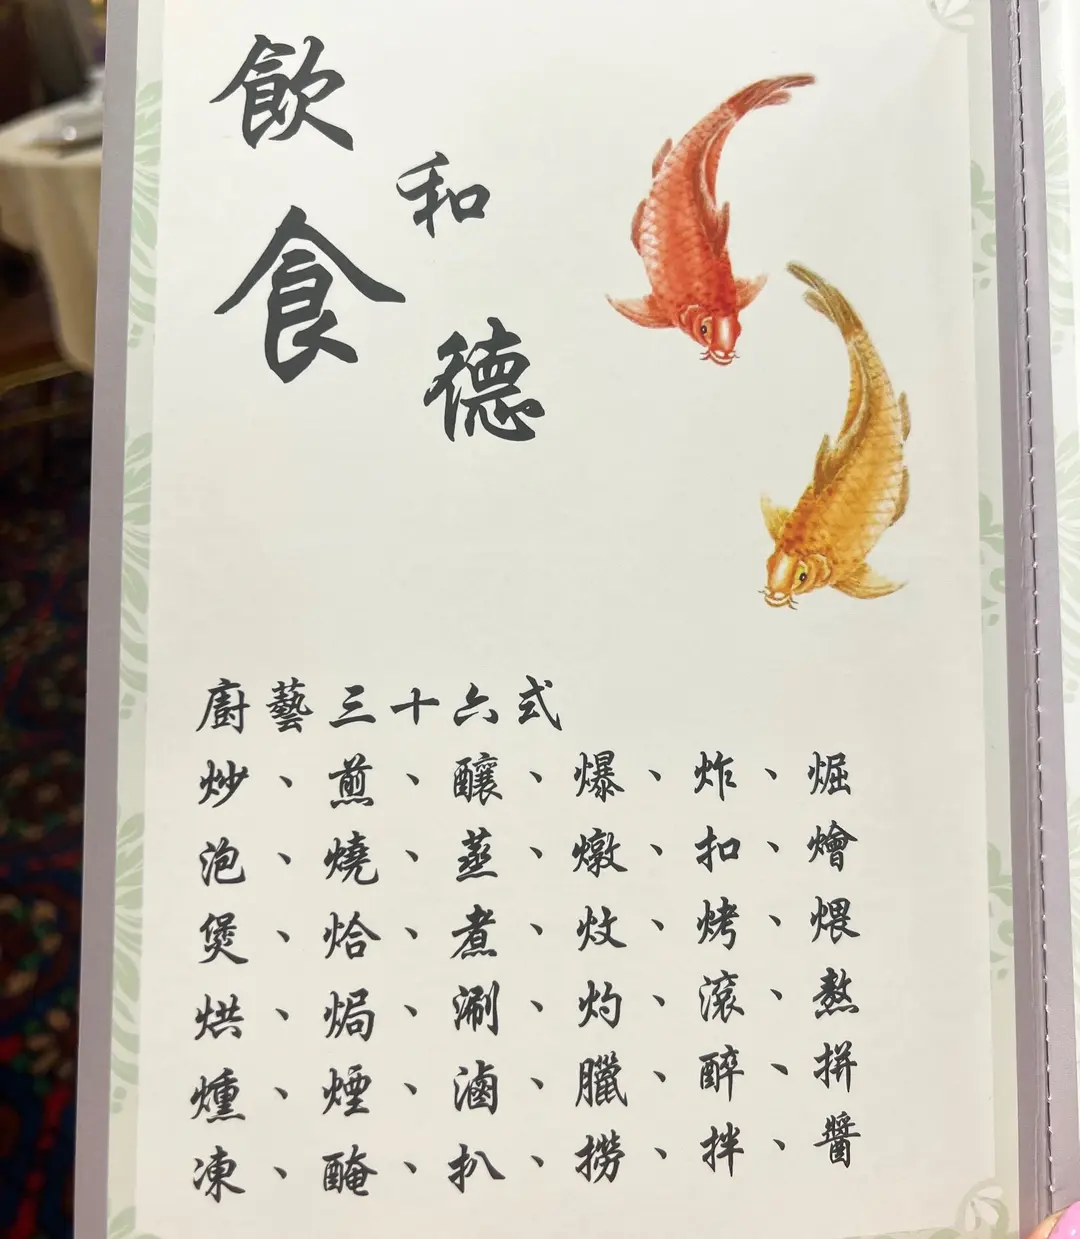 飲和
食德
廚藝三十六式
炒、煎、釀、爆、炸、煀
泡、燒、蒸、燉、扣、燴
煲、烚、煮、炆、烤、煨
烘、焗、涮、灼、滾、熬
燻、煙、滷、臘、醉、拼
凍、醃、扒、撈、拌、醬